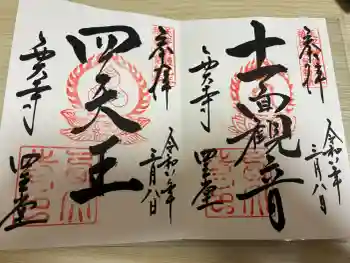 奉拝
令和六年
三月八日
十一面観音
西大寺
四王堂
奉拝
令和六年
三月八日
四天王
西大寺
四王堂